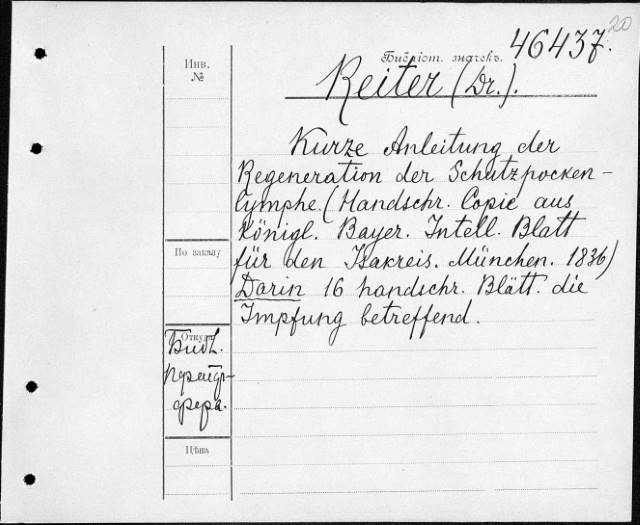 20
46437.
Библіот. значекъ.
Инв.
№
Reiter (Dr.).
Kurze Anleitung der
Regeneration der Schutzpocken-
lymphe. (Handschr. Copie aus
Königl. Bayer. Intell. Blatt
für den Isakreis. München. 1836)
Darin 16 handschr. Blätt. die
Impfung betreffend.
По заказу
Откуда
Библ.
Цѣна